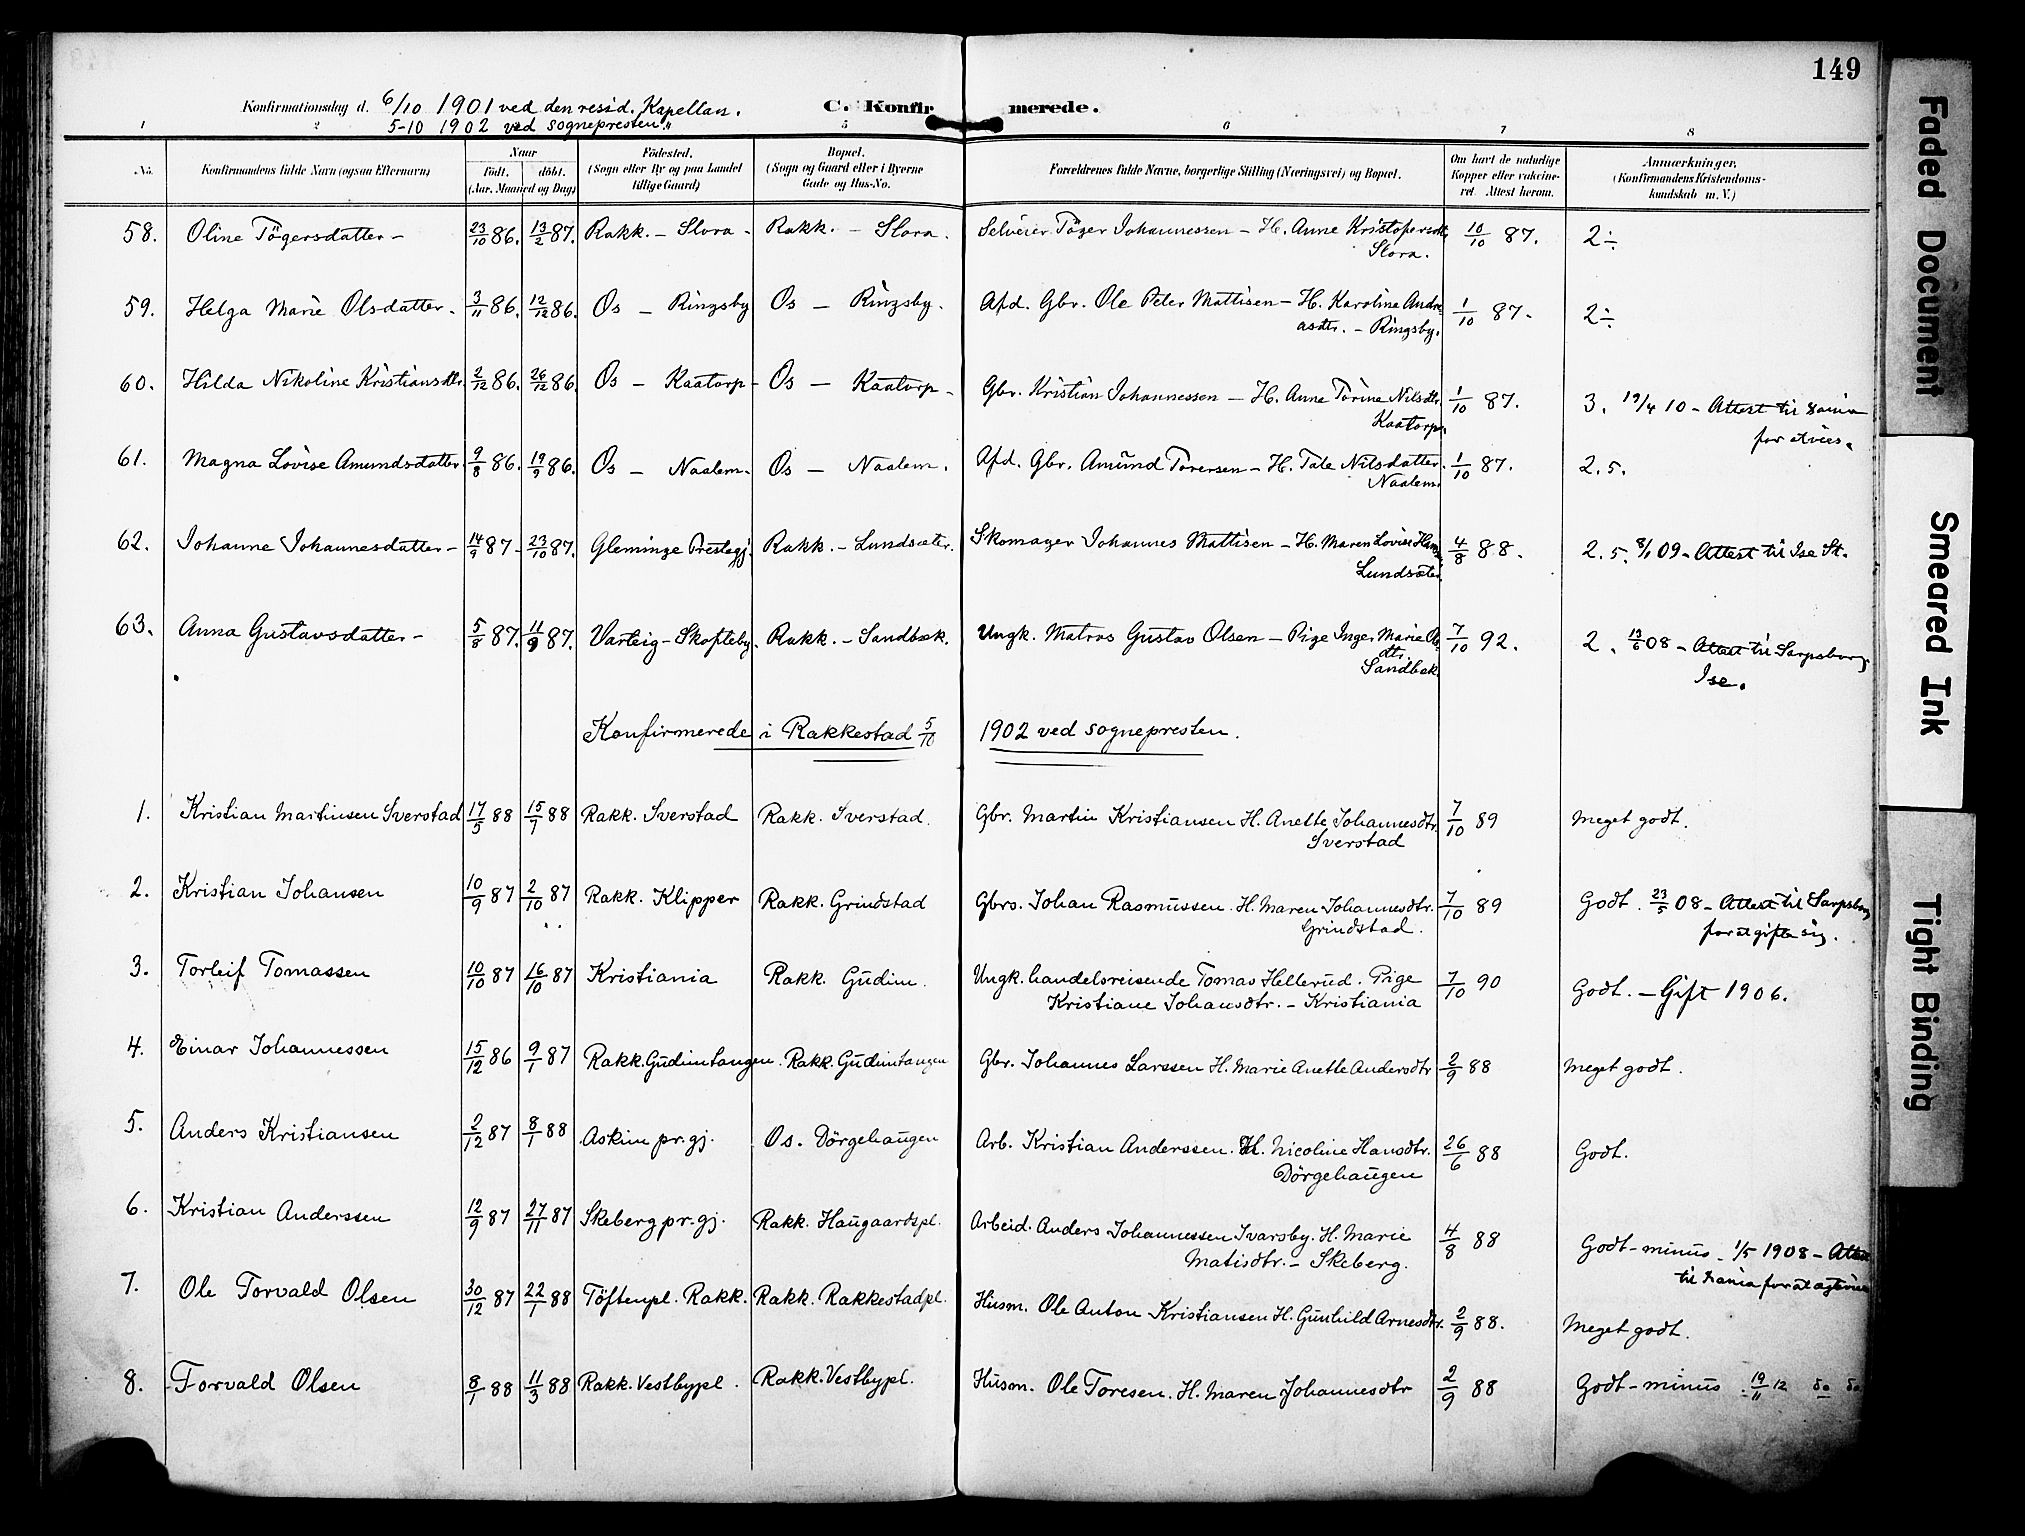 149
Konfirmationsdag d. 6/10 1901 ved den resid. Kapellan.
5-10 1902 ved sognepresten.
C. Konfirmerede.
1 2 5 6 7 8
No. Konfirmandens fulde Navn (ogsaa Efternavn) Naar født. døbt. (Aar, Maaned og Dag) Fødested. (Sogn eller By og paa Landet tillige Gaard) Bopæl. (Sogn og Gaard eller i Byerne Gade og Hus-No. Forældrenes fulde Navne, borgerlige Stilling (Næringsvei) og Bopæl. Om havt de naturlige Kopper eller vakcineret. Attest herom. Anmærkninger. (Konfirmandens Kristendomskundskab m. V.)
58. Oline Tögersdatter - 23/10 86. 13/2 87. Rakk. - Slora - Rakk. - Slora. Selveier Töger Johannessen - H. Anne Kristofersdtr. 10/10 87. 2 ÷
Slora.
59. Helga Marie Olsdatter. 3/11 86. 12/12 86. Os - Ringsby Os - Ringsby. Afd. Gbr. Ole Peter Mattisen - H. Karoline Andre 1/10 87. 2 ÷
asdtr. - Ringsby.
60. Hilda Nikoline Kristiansdtr. 2/12 86. 26/12 86. Os - Kaatorp - Os - Kaatorp - Gbr. Kristian Johannessen - H. Anne Torine Nilsdtr 1/10 87. 3. 19/4 10 - Attest til Kania
Kaatorp. for at vies.
61. Magna Lovise Amundsdatter. 9/8 86. 19/9 86. Os - Naalem. Os - Naalem. Afd. Gbr. Amund Torersen - H. Tale Nilsdatter. 1/10 87. 2.5.
Naalem.
62. Johanne Johannesdatter - 14/9 87 - 23/10 87. Gleminge Prestegj. Rakk. - Lundsæter. Skomager Johannes Mattisen - H. Maren Lovise 4/8 88. 2.5. 8/1 09 - Attest til Ise St.
Lundsæter.
63. Anna Gustavsdatter - 5/8 87. 11/9 87. Varteig - Skofteby. Rakk. - Sandbæk. Ungk. Matros Gustav Olsen - Pige Inger Marie Ols 7/10 92. 2. 13/6 08 - Attest til Sarpsborg.
dtr. Sandbæk. Ise.
Konfirmerede i Rakkestad 5/10 1902 ved sognepresten.
1. Kristian Martinsen Sverstad 17/5 88 15/7 88 Rakk. Sverstad Rakk. Sverstad. Gbr. Martin Kristiansen H. Anette Johannesdtr. 7/10 89 Meget godt.
Sverstad
2. Kristian Johansen 10/9 87 2/10 87 Rakk. Klipper Rakk. Grindstad Gbrs. Johan Rasmussen. H. Maren Johannesdtr. 7/10 89 Godt. 23/5 08 - Attest til Sarpsborg
Grindstad. for at gifte sig.
3. Torleif Tomassen 10/10 87 16/10 87 Kristiania Rakk. Gudim. Ungk. handelsreisende Tomas Hellerud. Pige 7/10 90 Godt. - Gift 1906.
Kristiane Johansdtr. - Kristiania
4. Einar Johannessen 15/12 86 9/1 87 Rakk. Gudimtangen. Rakk. Gudimtangen Gbr. Johannes Larssen H. Marie Anette Andersdtr 2/9 88 Meget godt.
5. Anders Kristiansen 2/12 87 8/1 88 Askim pr.gj. Os. Dörgehaugen Arb. Kristian Anderssen. H. Nicoline Hansdtr. 26/6 88 Godt.
Dörgehaugen
6. Kristian Anderssen 12/9 87 27/11 87 Skeberg pr.gj. Rakk. Haugaardspl. Arbeid. Anders Johannessen Ivarsby. H. Marie 4/8 88 Godt-minus. 1/5 1908 - Attest
Matisdtr. - Skeberg. til Kania for at
7. Ole Torvald Olsen 30/12 87 22/1 88 Töftenpl. Rakk. Rakk. Rakkestadpl. Husm. Ole Anton Kristiansen H. Gunhild Arnesdtr. 2/9 88. Meget godt.
8. Torvald Olsen 8/1 88 11/3 88 Rakk. Vestbypl. Rakk. Vestbypl. Husm. Ole Toresen. H. Maren Johannesdtr 2/9 88 Godt-minus. 19/11 12 do do
Faded Document
Smeared Ink
Tight Binding